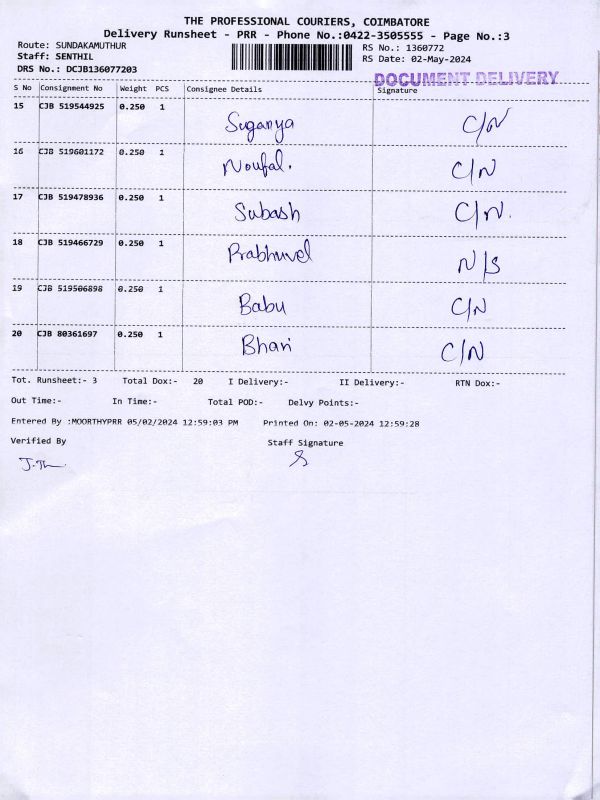 THE PROFESSIONAL COURIERS, COIMBATORE
Delivery Runsheet - PRR - Phone No.:0422-3505555 - Page No.:3
Route: SUNDAKAMUTHUR RS No.: 1360772
Staff: SENTHIL RS Date: 02-May-2024
DRS No.: DCJB136077203
DOCUMENT DELIVERY
S No Consignment No Weight PCS Consignee Details Signature
15 CJB 519544925 0.250 1 Suganya C/N
16 CJB 519601172 0.250 1 Noufal. C/N
17 CJB 519478936 0.250 1 Subash C/N.
18 CJB 519466729 0.250 1 Prabhuvel N/S
19 CJB 519506898 0.250 1 Babu C/N
20 CJB 80361697 0.250 1 Bhari C/N
Tot. Runsheet:- 3 Total Dox:- 20 I Delivery:- II Delivery:- RTN Dox:-
Out Time:- In Time:- Total POD:- Delvy Points:-
Entered By :MOORTHYPRR 05/02/2024 12:59:03 PM Printed On: 02-05-2024 12:59:28
Verified By Staff Signature